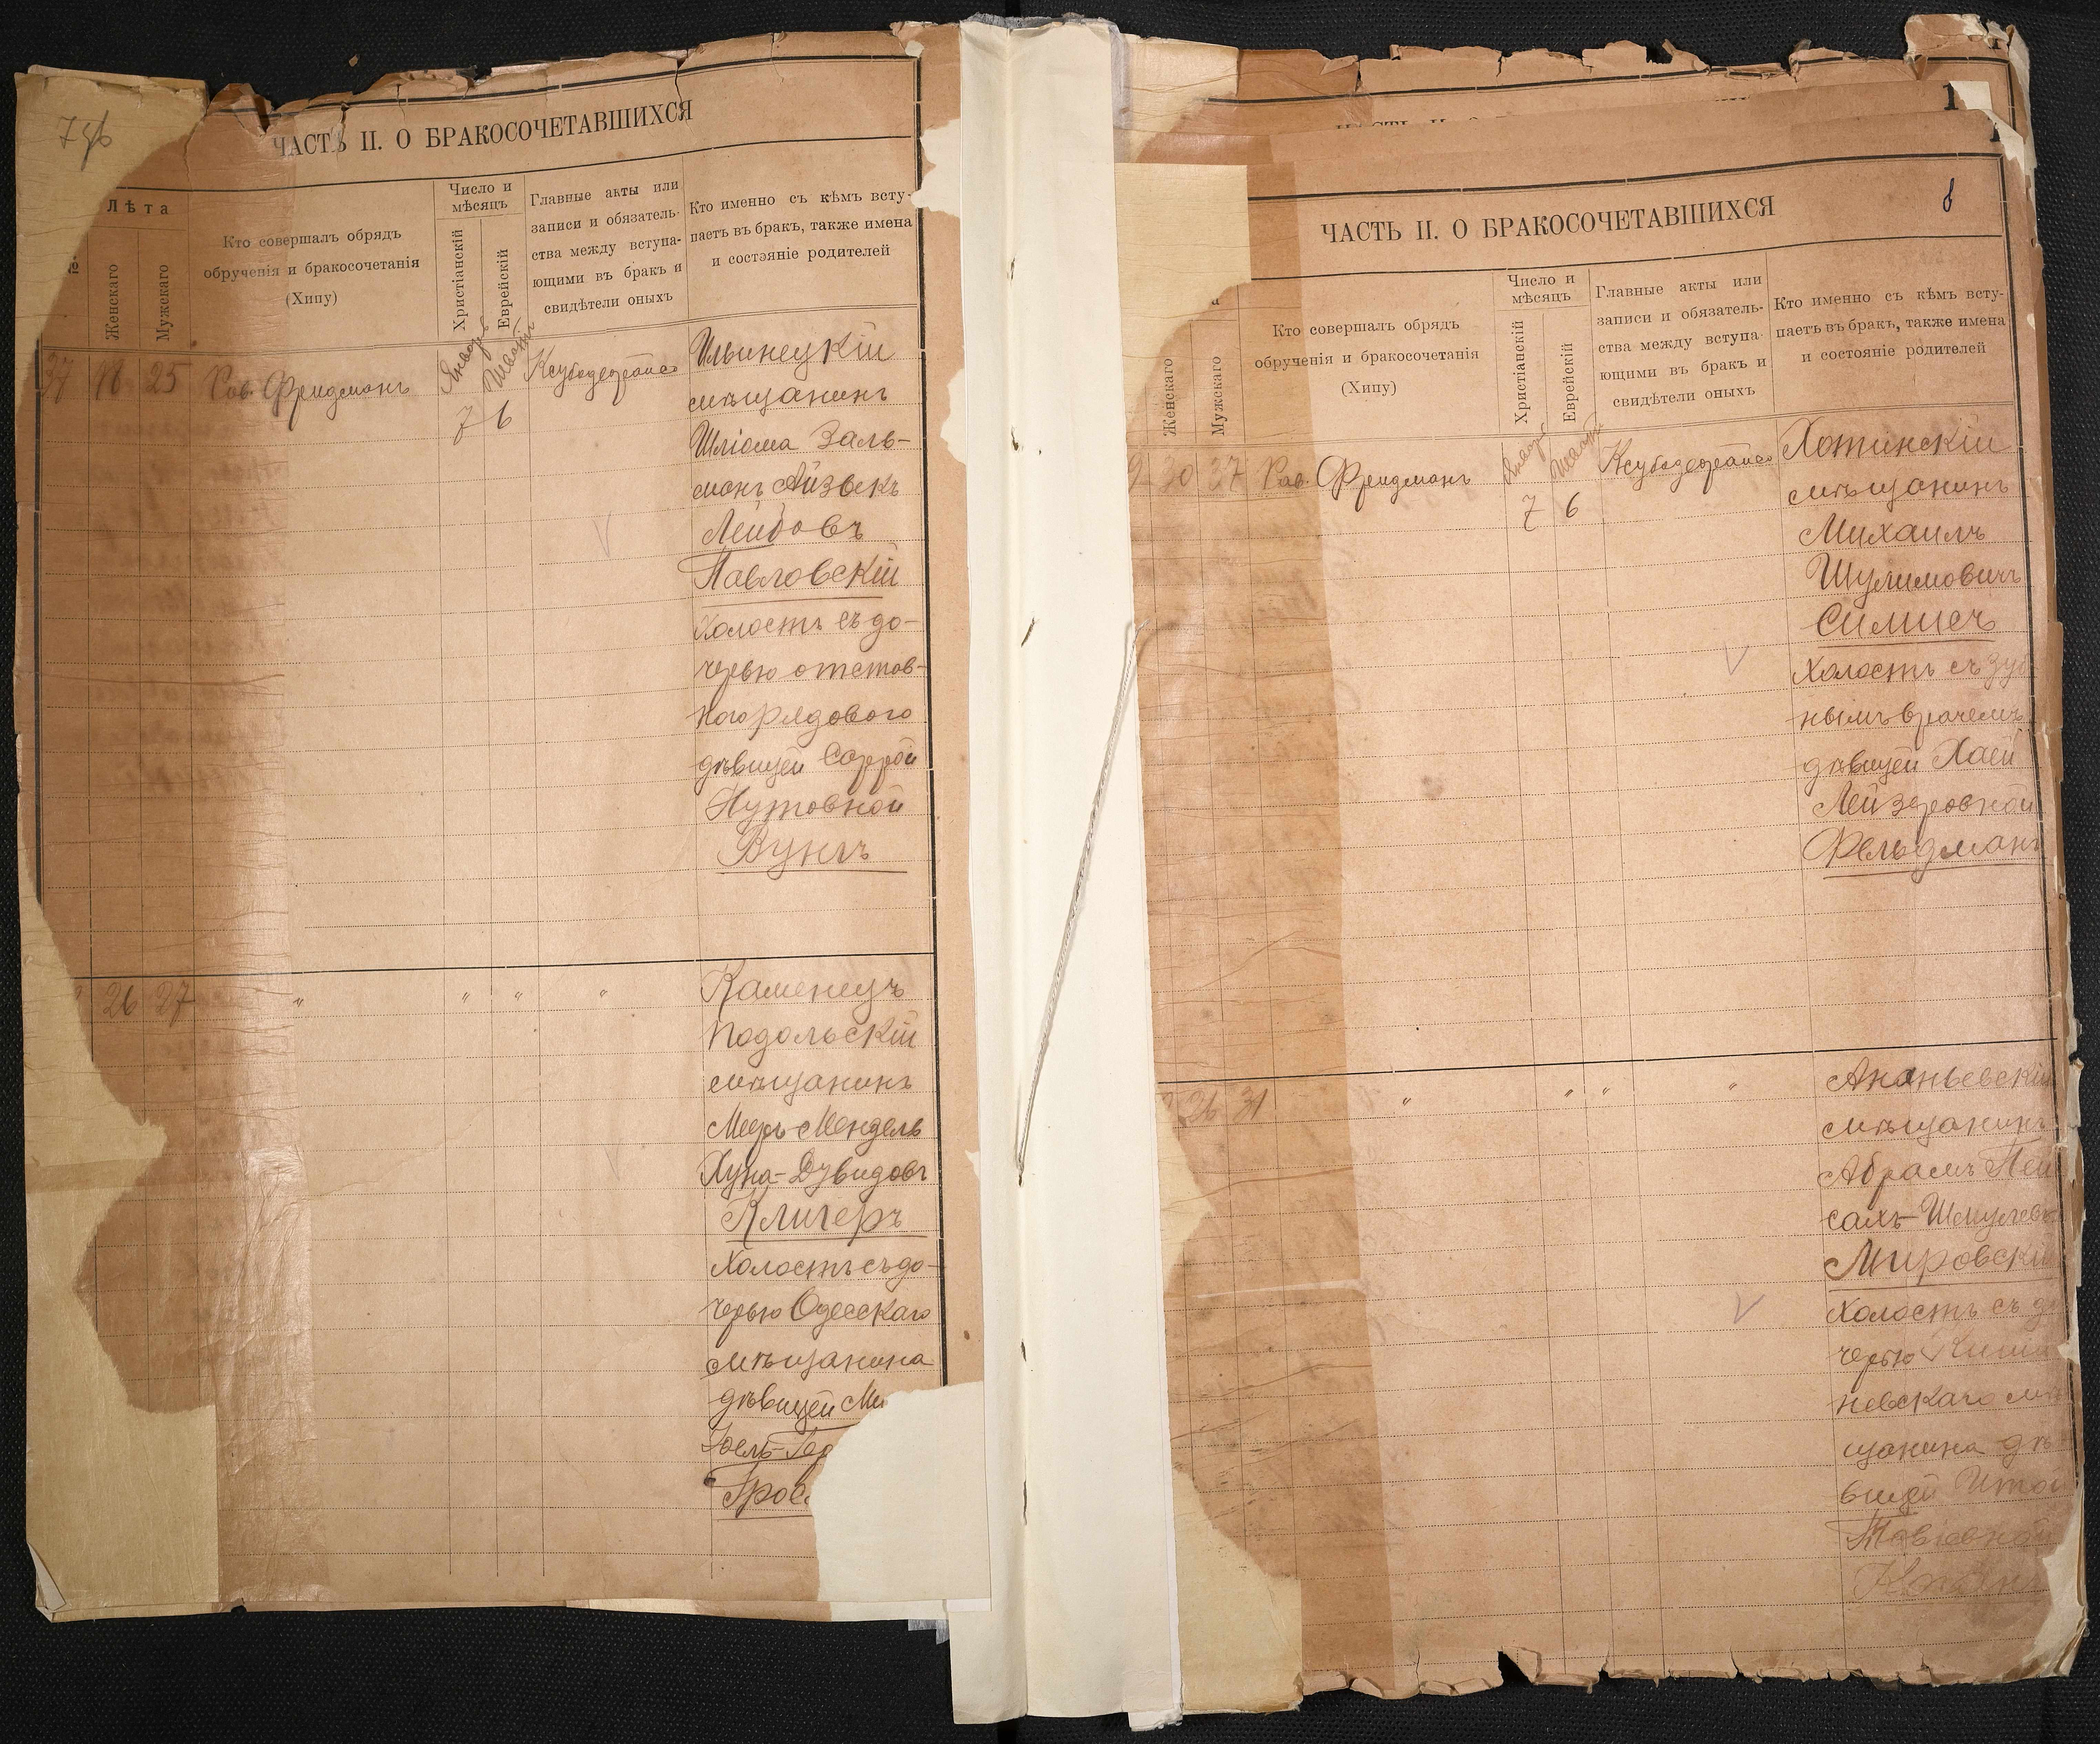 ЧАСТЬ II. О БРАКОСОЧЕТАВШИХСЯ
Лѣта
Женскаго
Мужскаго
Кто совершалъ обрядъ
обрученія и бракосочетанія
(Хипу)
Число и
мѣсяцъ
Христіанскій
Еврейскій
Главные акты или
записи и обязатель-
ства между вступа-
ющими въ бракъ и
свидѣтели оныхъ
Кто именно съ кѣмъ всту-
паетъ въ бракъ, также имена
и состояніе родителей
37 18 25 Рав. Фридманъ
7 6
Ильинецкій
мѣщанинъ
Шліома Заль-
манъ Айзыкъ
Лейбовъ
Павловскій
холостъ съ до-
черью отстав-
ного рядового
дѣвицей Саррой
Нутовной
Вунгъ
26 27 " " " "
Каменецъ
Подольскій
мѣщанинъ
Меръ-Мендель
Хуна-Дувидовъ
Клигеръ
холостъ съ до-
черью Одесскаго
мѣщанина
дѣвицей
ЧАСТЬ II. О БРАКОСОЧЕТАВШИХСЯ
8
Женскаго
Мужскаго
Кто совершалъ обрядъ
обрученія и бракосочетанія
(Хипу)
Число и
мѣсяцъ
Христіанскій
Еврейскій
Главные акты или
записи и обязатель-
ства между вступа-
ющими въ бракъ и
свидѣтели оныхъ
Кто именно съ кѣмъ всту-
паетъ въ бракъ, также имена
и состояніе родителей
30 37 Рав. Фридманъ
7 6
Хотинскій
мѣщанинъ
Михаилъ
Шулимовичъ
Силисъ
холостъ съ зуб
нымъ врачемъ
дѣвицей Хаей
Лейзеровной
Фельдманъ
26 31 " " " "
Ананьевскій
мѣщанинъ
Абрамъ Пей
сахъ-Шмулевъ
Мировскій
холостъ съ до
черью Киши
невскаго мѣ
щанина дѣ
вицей